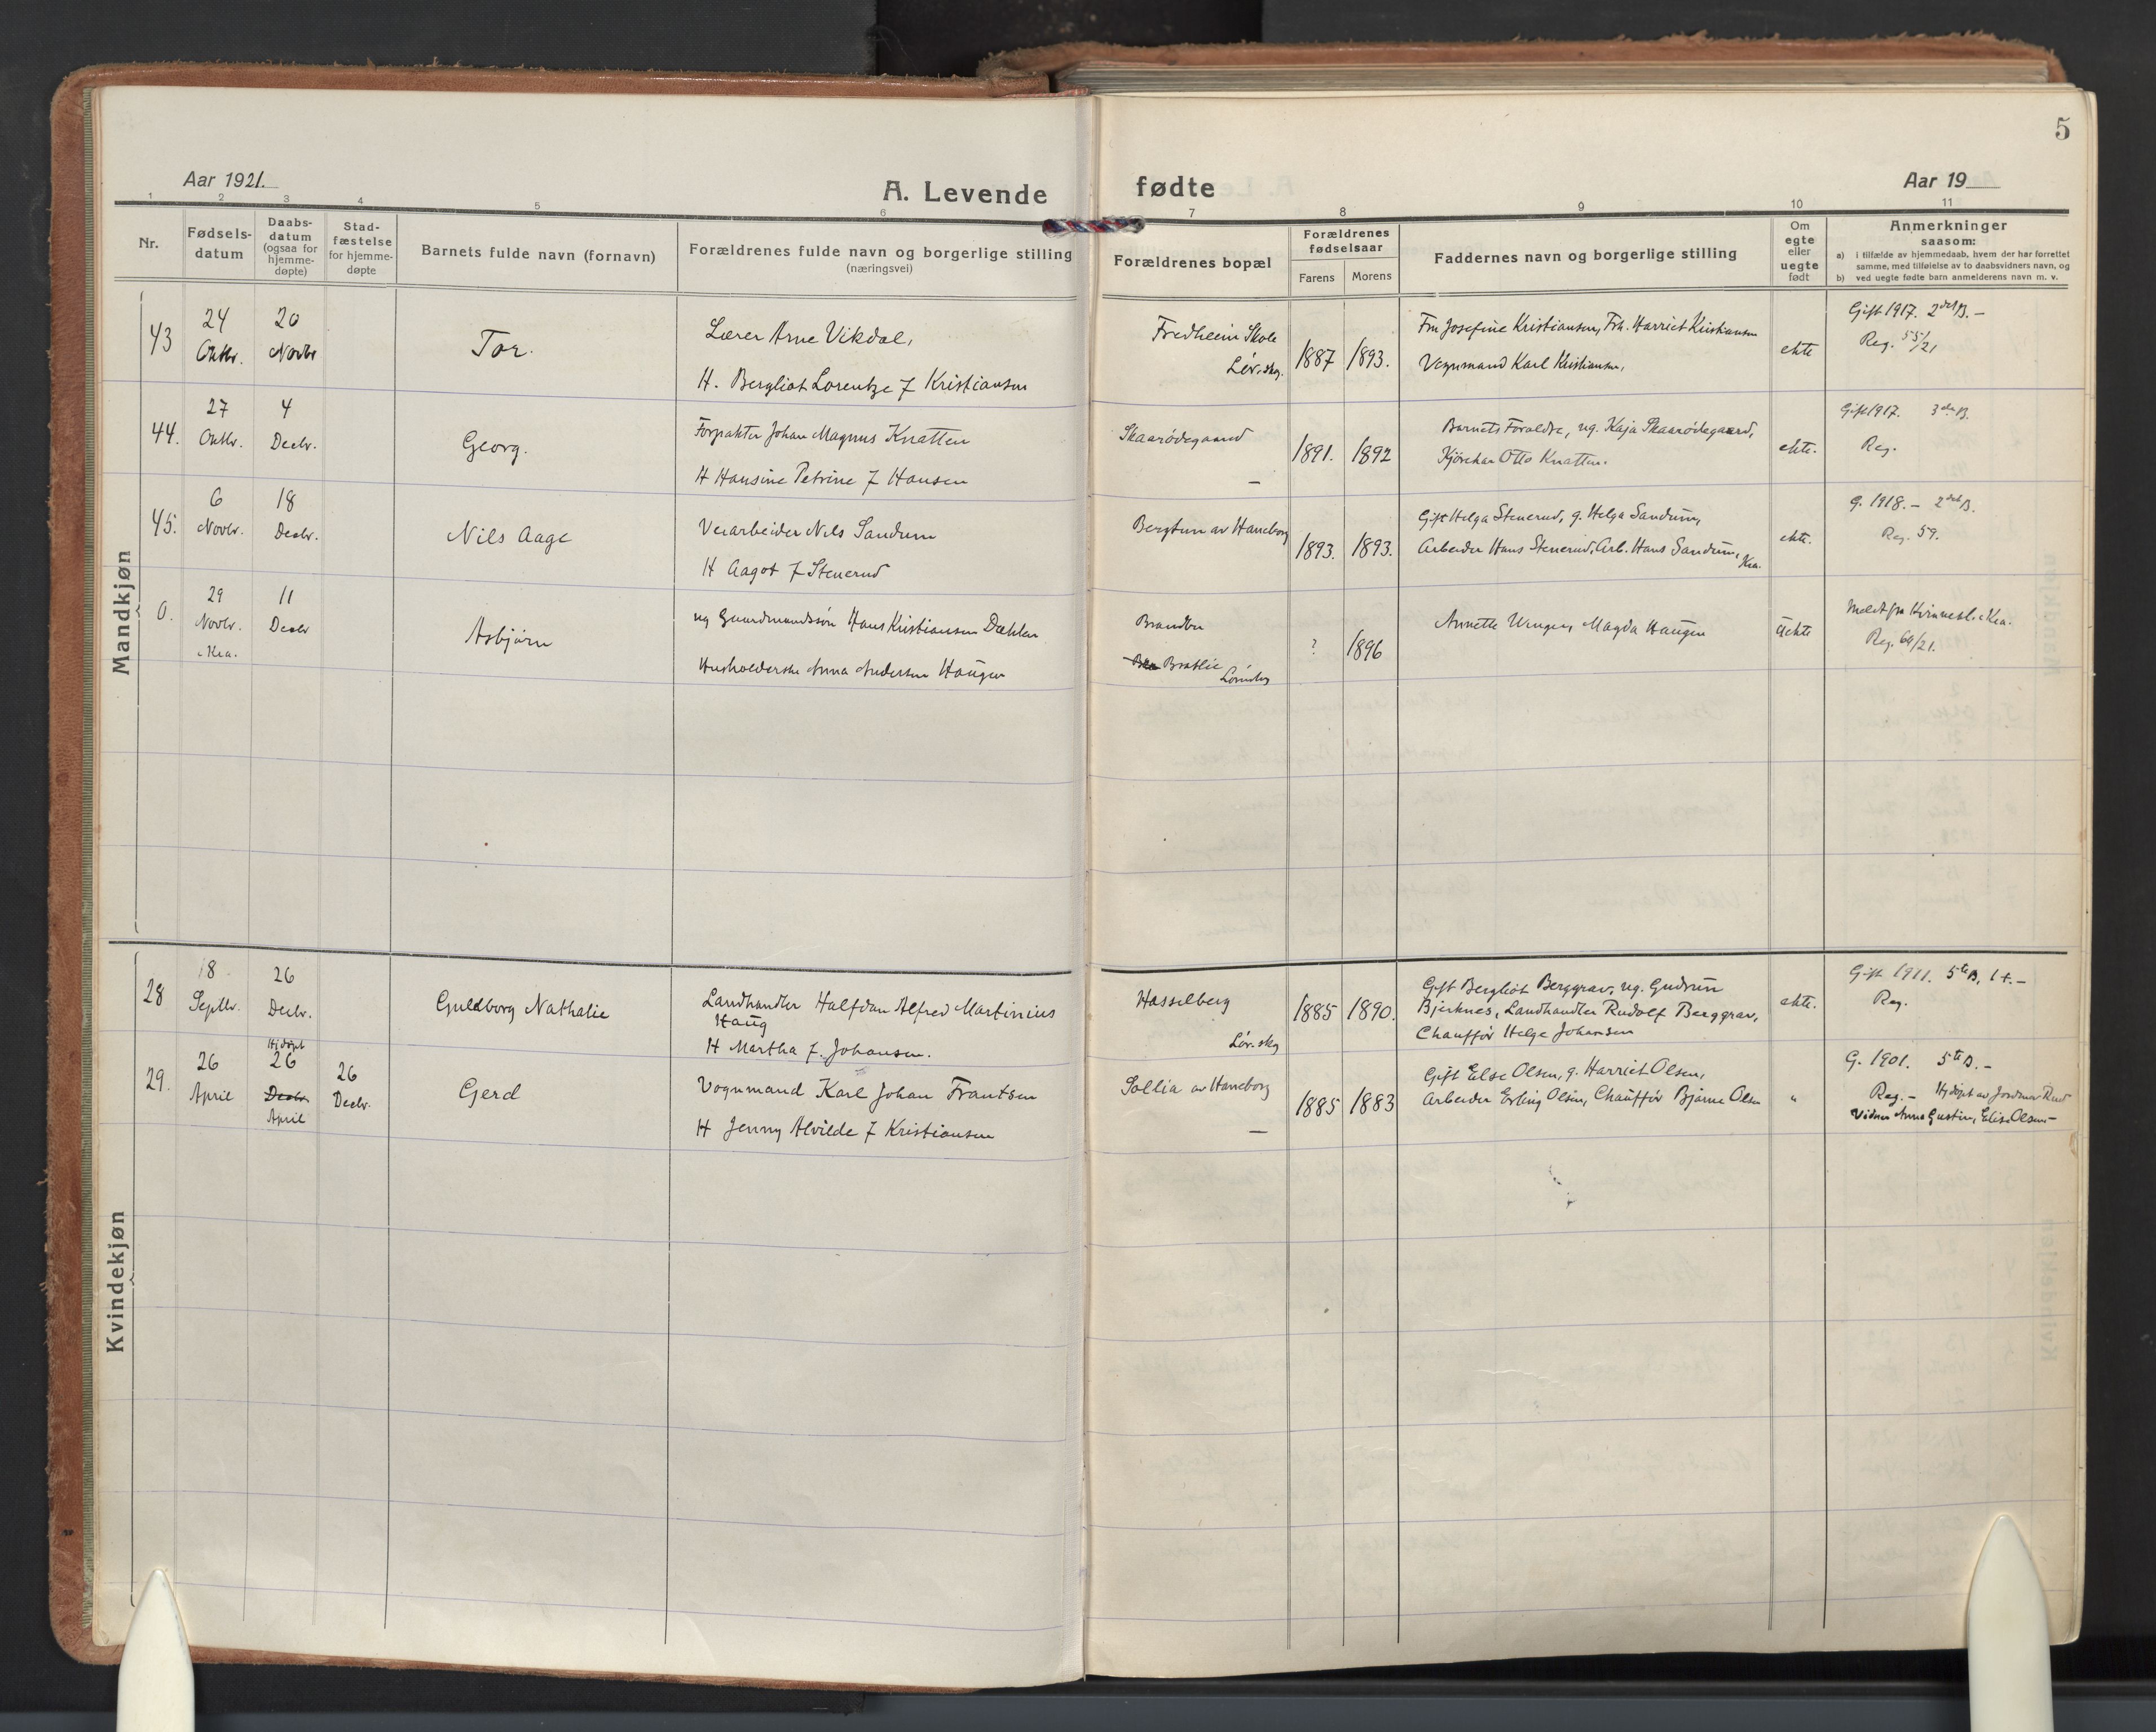 5
Aar 1921.
A. Levende fødte
Aar 19
1 2 3 4 5 6 7 8 9 10 11
Nr.
Fødsels-
datum
Daabs-
datum
(ogsaa for
hjemme-
døpte)
Stad-
fæstelse
for hjemme-
døpte
Barnets fulde navn (fornavn)
Forældrenes fulde navn og borgerlige stilling
(næringsvei)
Forældrenes bopæl
Forældrenes
fødselsaar
Farens Morens
Faddernes navn og borgerlige stilling
Om
egte
eller
uegte
født
Anmerkninger
saasom:
a) i tilfælde av hjemmedaab, hvem der har forrettet
samme, med tilføielse av to daabsvidners navn, og
b) ved uegte fødte barn anmelderens navn m. v.
Mandkjøn
43
24
Oktbr.
20
Novbr
Tor.
Lærer Arne Vikdal,
H. Bergliot Lorentze f Kristiansen
Fredheim Skole
Lør.skg.
1887 1893.
Fru Josefine Kristiansen, Frk. Harriet Kristiansen
Vognmand Karl Kristiansen,
ekte
Gift 1917. 2det B. -
Reg. 55/21
44.
27
Oktbr.
4
Decbr.
Georg.
Forpakter Johan Magnus Knatten
H Hansine Petrine f Hansen
Skaarødegaard
—
1891. 1892
Barnets Foraldre, ug. Kaja Skaarødegaard,
Kjørekar Otto Knatten.
ekte.
Gift 1917. 3die B.
Reg.
45.
6
Novbr.
18
Decbr.
Nils Aage
Veiarbeider Nils Sandum
H Aagot f Stenerud
Bergtun av Haneborg
1893. 1893.
Gift Helga Stenerud, g. Helga Sandum,
Arbeider Hans Stenerud, Arb. Hans Sandum, Kra.
ekte.
G. 1918. - 2det B.
Reg. 59.
0.
29
Novbr.
i Kra.
11
Decbr
Asbjørn
ug Gaardmandssøn Hans Kristiansen Dæhlen
Husholderske Anna Andersen Haugen
Brandbu
Bratlie
Lørenskg
? 1896
Annette Wengen, Magda Haugen
Uekte
Meldt fra Kvinnekl. i Kra.
Reg. 60/21.
Kvindekjøn
28
18
Septbr.
26
Decbr.
Guldborg Nathalie
Landhandler Halfdan Alfred Martinius
Haug
H Martha f. Johansen.
Hasselberg
Lør.skg
1885 1890.
Gift Bergliot Berggrav, ug. Gudrun
Bjerknes, Landhandler Rudolf Berggrav,
Chauffør Helge Johansen
ekte.
Gift 1911. 5te B, 1 +. -
Reg.
29.
26
April
Hjdøpt
26
Decbr.
April
26
Decbr.
Gerd
Vognmand Karl Johan Frantsen
H Jenny Alvilde f Kristiansen
Sollia av Haneborg
—
1885 1883
Gift Else Olsen, g. Harriet Olsen,
Arbeider Erling Olsen, Chauffør Bjarne Olsen
"
G. 1901. 5te B. -
Reg. - Hjdøpt av Jordmor Ruud
Vidner Anna Gustin, Elise Olsen -